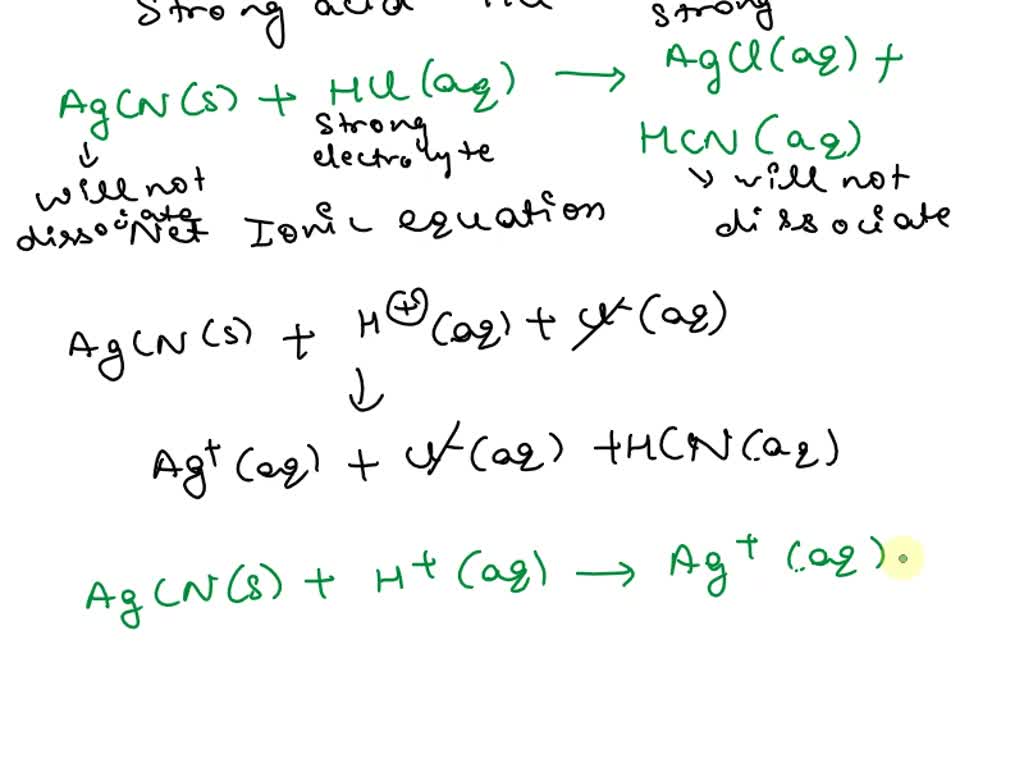 Strong acid strong
AgCN(s) + HCl(aq) → AgCl(aq) +
strong
electrolyte
HCN(aq)
↓
will not
dissociate
↘ will not
dissociate
Net Ionic equation
AgCN(s) + H⊕(aq) + Cl-(aq)
↓
Ag+(aq) + Cl-(aq) + HCN(aq)
AgCN(s) + H+(aq) → Ag+(aq)